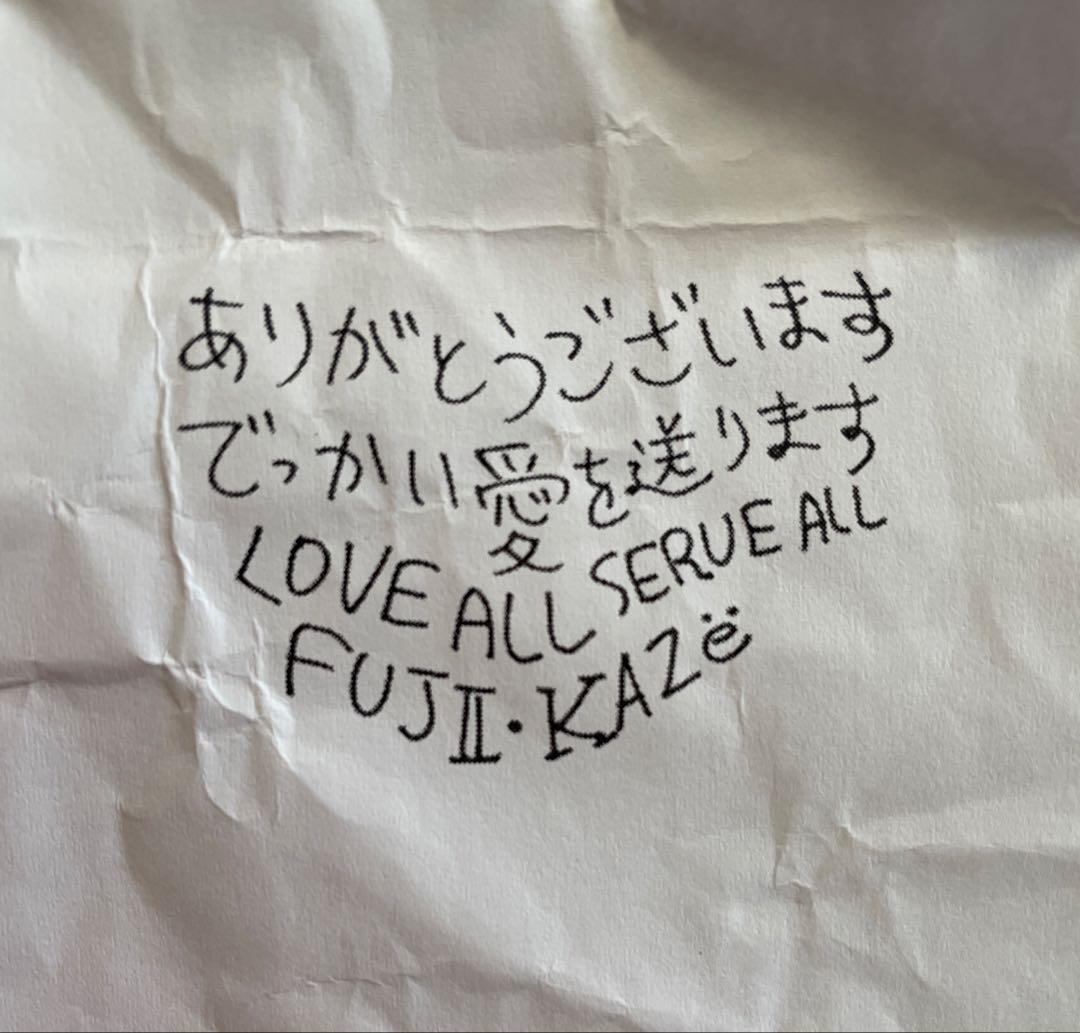 ありがとうございます
でっかい愛を送ります
LOVE ALL SERVE ALL
FUJII・KAZë